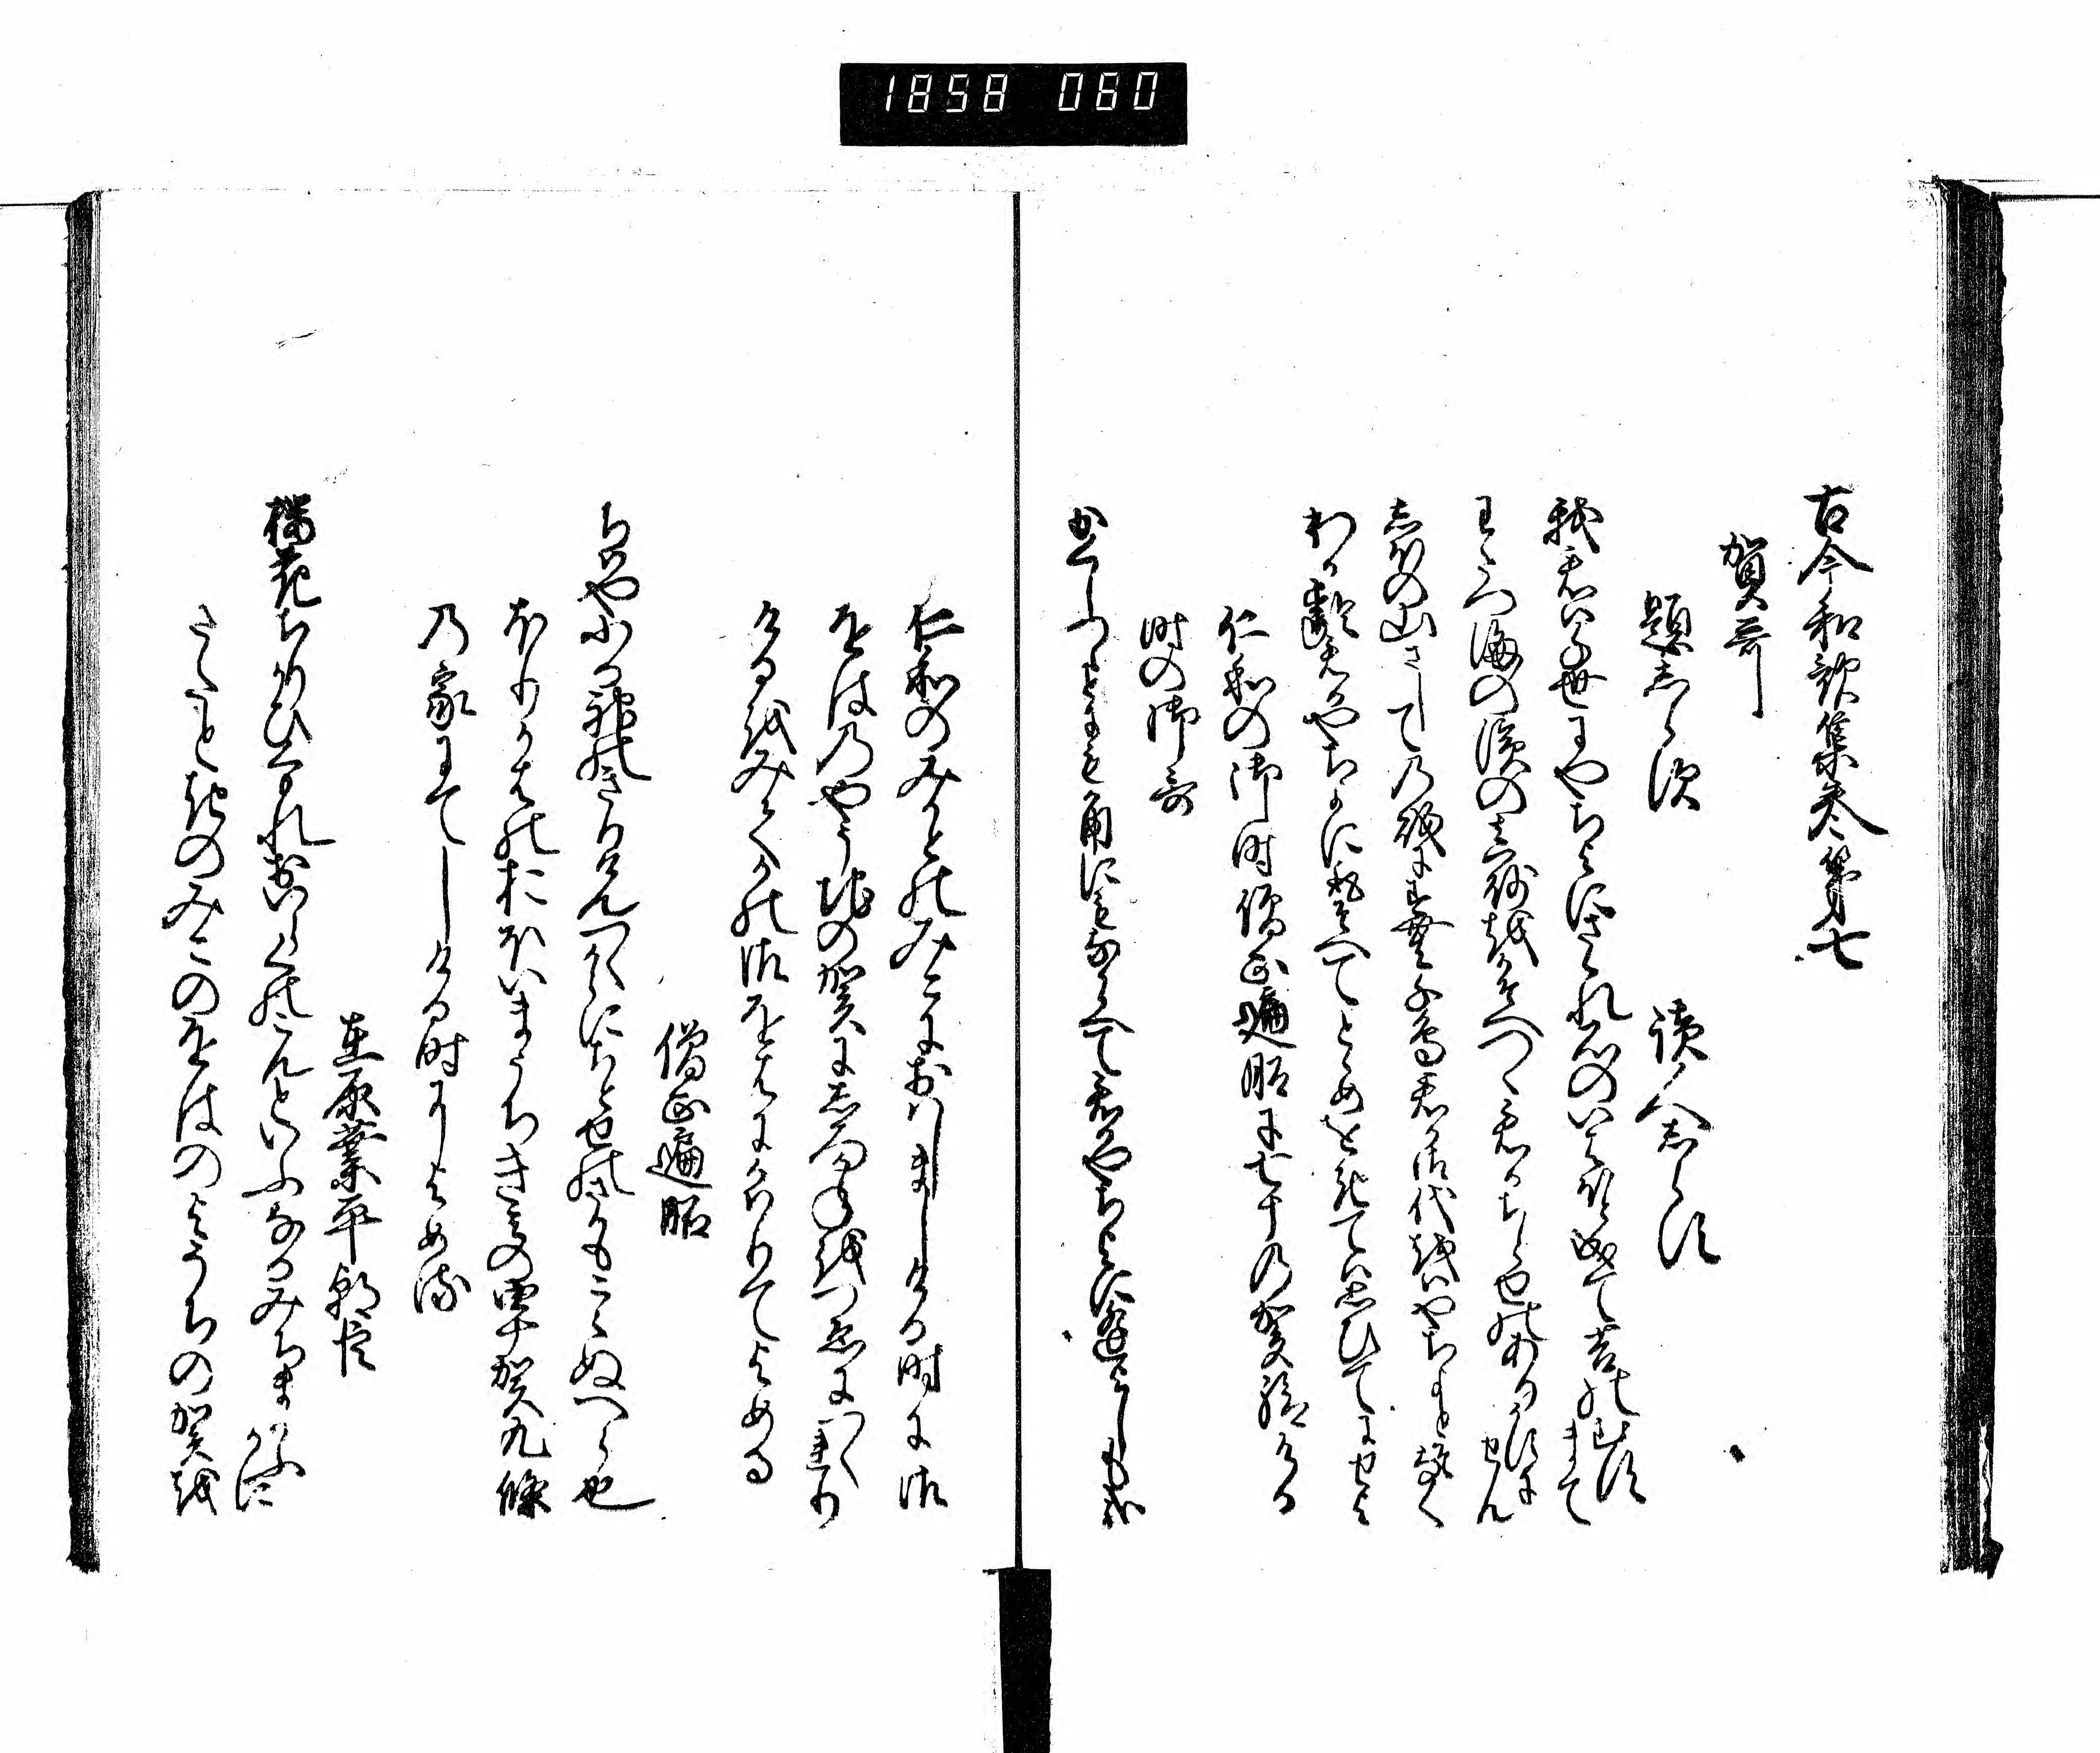 1858 080
古今和歌集巻第七
賀哥
題しらす　読人しらす
我君は千世にやちよにさゝれ石のいはほと成て苔のむすまて
わたつ海の浜の真砂をかそへつゝ君かちとせのあるかすにせん
しほの山さしての磯にすむ千鳥君か御代をはやちよとそ鳴
わか齢君かやちよにとりそへてとゝめをきては思ひてにせよ
仁和の御時僧正遍昭に七十の賀給ける
時の御哥
かくしつゝとにもかくにもなからへて君かやちよに逢よしもか
仁和のみかとのみこにおはしましける時に御
をはのやそちの賀にしろかねをつゑにつくれり
けるをみてかの御をはにかはりてよめる
僧正遍昭
ちはやふる神のきりけんつくからにちとせのさかもこえぬへら也
ほりかはのおほいまうちきみの四十賀九條
の家にてしける時によめる
在原業平朝臣
桜花ちりかひくもれおいらくのこんといふなるみちまかふかに
さたときのみこのをはのよそちの賀を